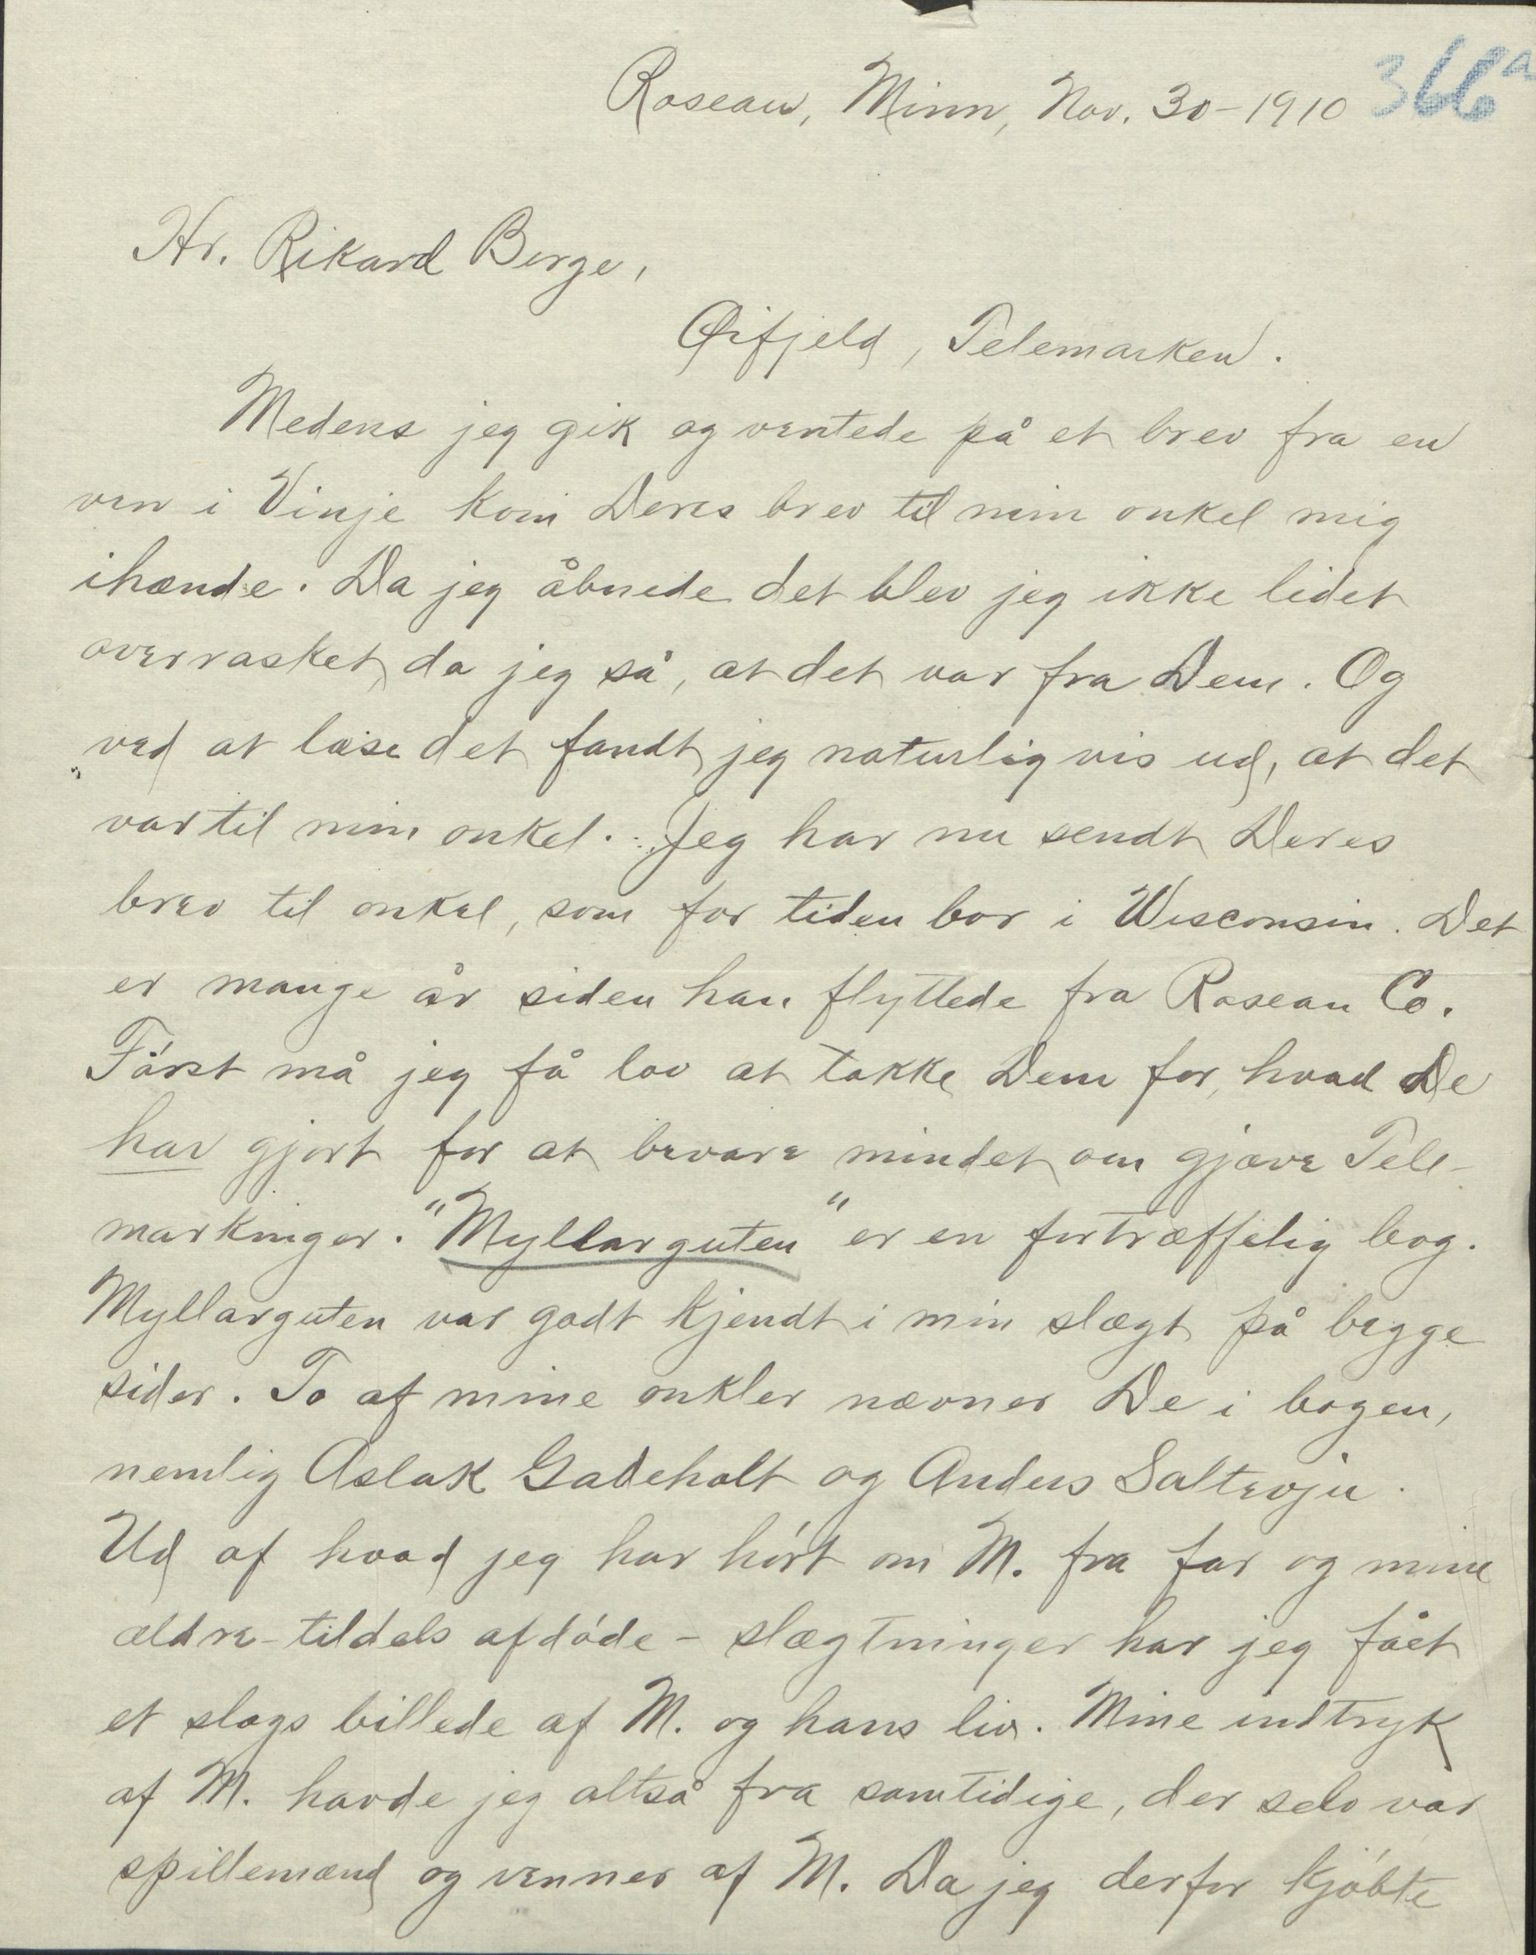 Roseau, Minn, Nov. 30-1910 366a
Hr. Rikard Berge,
Øifjeld, Telemarken.
Medens jeg gik og ventede på et brev fra en
ven i Vinje kom Deres brev til min onkel mig
ihænde. Da jeg åbnede det blev jeg ikke lidet
overrasket, da jeg så, at det var fra Dem. Og
ved at læse det fandt jeg naturligvis ud, at det
var til min onkel. Jeg har nu sendt Deres
brev til onkel, som for tiden bor i Wisconsin. Det
er mange år siden han flyttede fra Roseau Co.
Først må jeg få lov at takke Dem for, hvad De
har gjort for at bevare mindet om gjæve Tele-
markinger. "Myllarguten" er en fortræffelig bog.
Myllarguten var godt kjendt i min slægt på begge
sider. To af mine onkler nævner De i bogen,
nemlig Aslak Gadeholt og Anders Saltevju.
Ud af hvad jeg har hørt om M. fra far og mine
ældre - tildels afdøde - slægtninger har jeg fået
et slags billede af M. og hans liv. Mine indtryk
af M. havde jeg altså fra samtidige, der selv var
spillemænd og venner af M. Da jeg derfor kjøbte